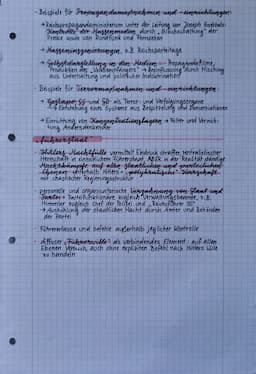 - Beispiel für Propagandamaßnahmen und -einrichtungen:
→ Reichspropagandaministerium unter der Leitung von Joseph Goebbels:
Kontrolle der Massenmedien durch „Gleichschaltung" der
Presse sowie von Rundfunk und Fernsehen
→ Masseninszenierungen, z.B. Reichsparteitage
→ Selbstdarstellung in den Medien: Propagandafilme,
Produktion des „Volksempfängers" → Beeinflussung durch Mischung
aus Unterhaltung und politischer Indoktrination
- Beispiel für Terrormaßnahmen und -einrichtungen:
→ Gestapo, SS und SD als Terror- und Verfolgungsorgane
→ Entstehung eines Systems aus Bespitzelung und Denunziationen
→ Einrichtung von Konzentrationslagern → Folter und Vernich-
tung Andersdenkender
Führerstaat
- Hitlers Machtfülle vermittelt Eindruck straffer, zentralistischer
Herrschaft in einheitlichem Führerstaat, ABER in der Realität ständige
Machtkämpfe auf allen staatlichen und parteilichen
Ebenen unterhalb Hitlers → „polykratische" Herrschaft
mit chaotischer Regierungsstruktur
- personelle und organisatorische Verzahnung von Staat und
Partei: Parteifunktionäre zugleich Verwaltungsbeamte, z.B.
Himmler zugleich Chef der Polizei und „Reichsführer SS"
→ Aushöhlung der staatlichen Macht durch Ämter und Behörden
der Partei
- Führererlasse und Befehle außerhalb jeglicher Kontrolle
- diffuser „Führerwille" als verbindendes Element auf allen
Ebenen: Versuch, auch ohne expliziten Befehl nach Hitlers Wille
zu handeln